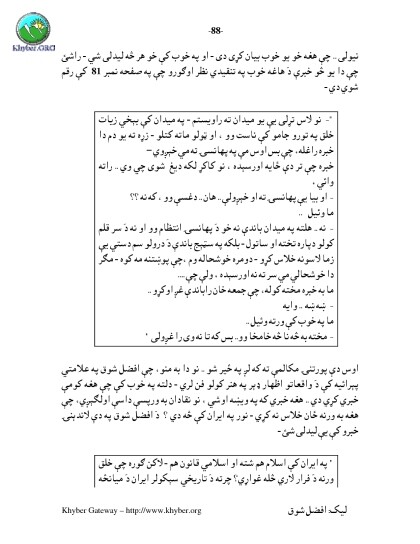 -88-
Khyber.ORG
نیولی.. چې هغه خو یو خوب بیان کړی دی - او په خوب کې خو هر څه لیدلی شي - راشئ
چې دا یو څو خبرې دَ هاغه خوب په تنقیدي نظر اوګورو چې په صفحه نمبر 81 کې رقم
شوي دي -
"- نو لاس تړلی یې یو میدان ته راویستم - په میدان کې ښځې زیات
خلق په تورو جامو کې ناست وو ، او ټولو ماته کتلو - زړه ته یو دم دا
خبره راغله، چې بس اوس مې په پهانسۍ ته مې خېږوي –
خبره چې تر دې ځایه اورسېده ، نو کاکړ لکه دېغ شوی چې وي .. راته
وائي ،
- او بیا یې پهانسۍ ته او خېږولې.. هان.. دغسې وو ، که نه؟؟
ما وئیل ..
- نه.. هلته په میدان باندې نه خو دَ پهانسۍ انتظام وو او نه دَ سر قلم
کولو دپاره تخته او ساتول - بلکه په سټیج باندې دَ درولو سم دستي یې
زما لاسونه خلاص کړو - دومره خوشحاله وم ، چې پوښتنه مه کوه - مګر
دا خوشحالي مې سر ته نه اورسېده ، ولې چې....
ما به خبره مخته کوله، چې جمعه خان راباندې غږ اوکړو..
- ښه ښه .. وایه
ما په خوب کې ورته وئیل..
- مخته به څه نا څه خامخا وو.. بس که تا نه وی را غږولی "
اوس دې پورتنۍ مکالمې ته که لږ په ځیر شو .. نو دا به منو ، چې افضل شوق په علامتي
پیرائیه کې دَ واقعاتو اظهار ډېر په هنر کولو فن لري - دلته په خوب کې چې هغه کومې
خبرې کړي دي.. هغه خبرې که په ویښه اوشي ، نو نقادان به ورپسې داسې اولګېږي، چې
هغه به ورنه ځان خلاص نه کړي - نور په ایران کې څه دي ؟ دَ افضل شوق په دې لاندېنۍ
خبرو کې یې لیدلی شئ -
" په ایران کې اسلام هم شته او اسلامي قانون هم - لاکن ګوره چې خلق
ورنه دَ فرار لارې څله غواړي؟ چرته دَ تاریخي سېکولر ایران دَ میانځه
Khyber Gateway – http://www.khyber.org
لیک: افضل شوق